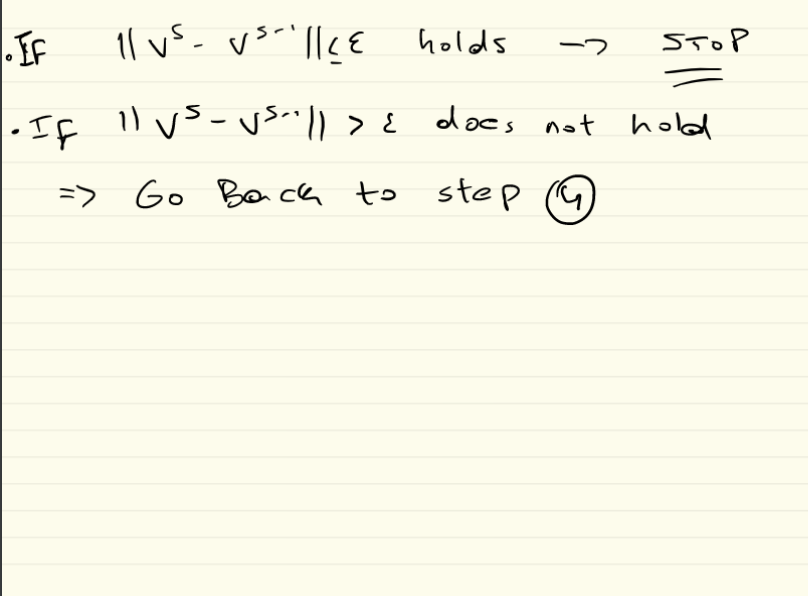 • IF || V^S - V^{S-1} || ≤ ε holds → STOP
• IF || V^S - V^{S-1} || > ε does not hold
=> Go Back to step ④